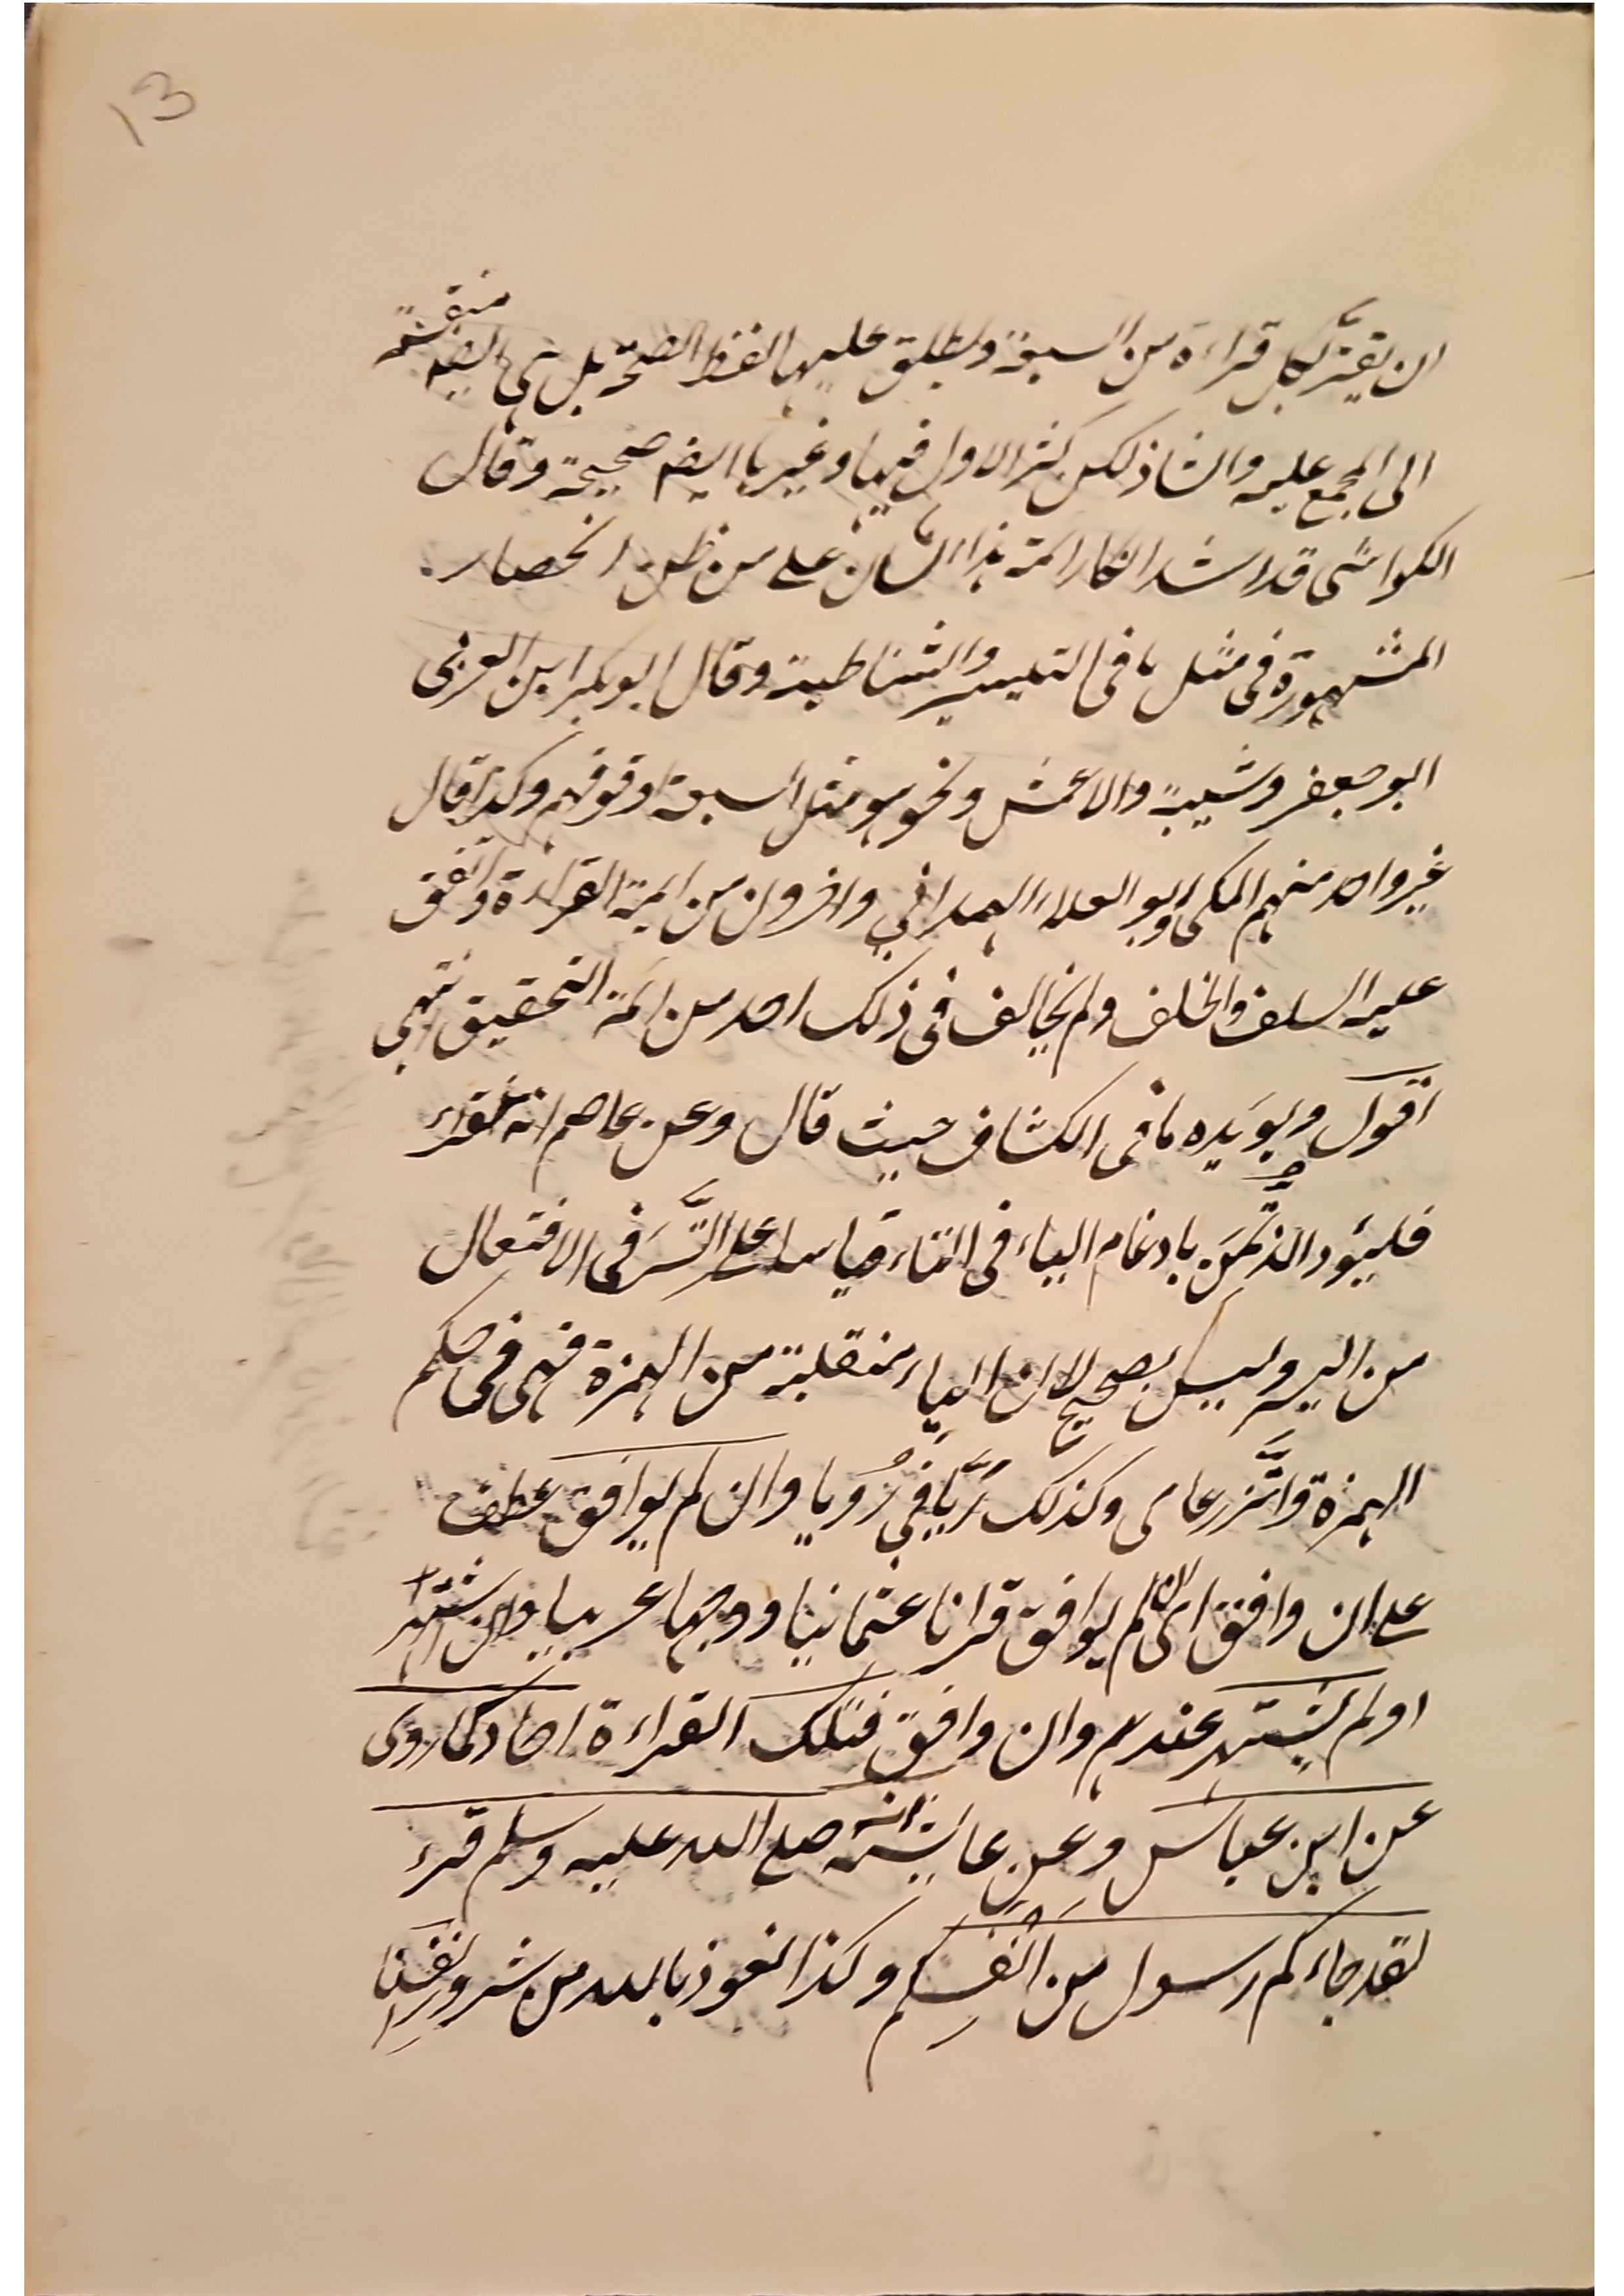 13
ان يغتر بكل قراءة من السبعة ويطلق عليها لفظ الصحة بل هي ايضا منقسمة
الى المجمع عليه والشاذ لكن كثر الاول فيها وغيرها ايضا صحيحة وقال
الكواشى قد اشتد انكار ائمة هذا الشان على من ظن انحصار
المشهورة فى مثل ما فى التيسير والشاطبية وقال ابو بكر ابن العربى
ابو جعفر وشيبة والاعمش ونحوهم مثل السبعة او فوقهم وكذا قال
غير واحد منهم المكى وابو العلاء الهمدانى واخرون من ائمة القراءة واتفق
عليه السلف والخلف ولم يخالف فى ذلك احد من ائمة التحقيق انتهى
اقول ويؤيده ما فى الكشاف حيث قال وعن عاصم انه يقرأ
فليؤد الذتمن بادغام الياء فى التاء قياسا على اتسر فى الافتعال
من اليسر وليس بصحيح لان الياء منقلبة من الهمزة فهى فى حكم
الهمزة واتزر عامى وكذلك ريا فى رويا وان لم يوافق عطف
على ان وافق اى لم يوافق قرانا عثمانيا ووجها عربيا وان اشتهر
اولم يشتهر عندهم وان وافق فتلك القراءة احاد كما روى
عن ابن عباس وعن عايشة انه صلى الله عليه وسلم قرء
لقد جاءكم رسول من انفسكم وكذا نعوذ بالله من شرور انفسنا